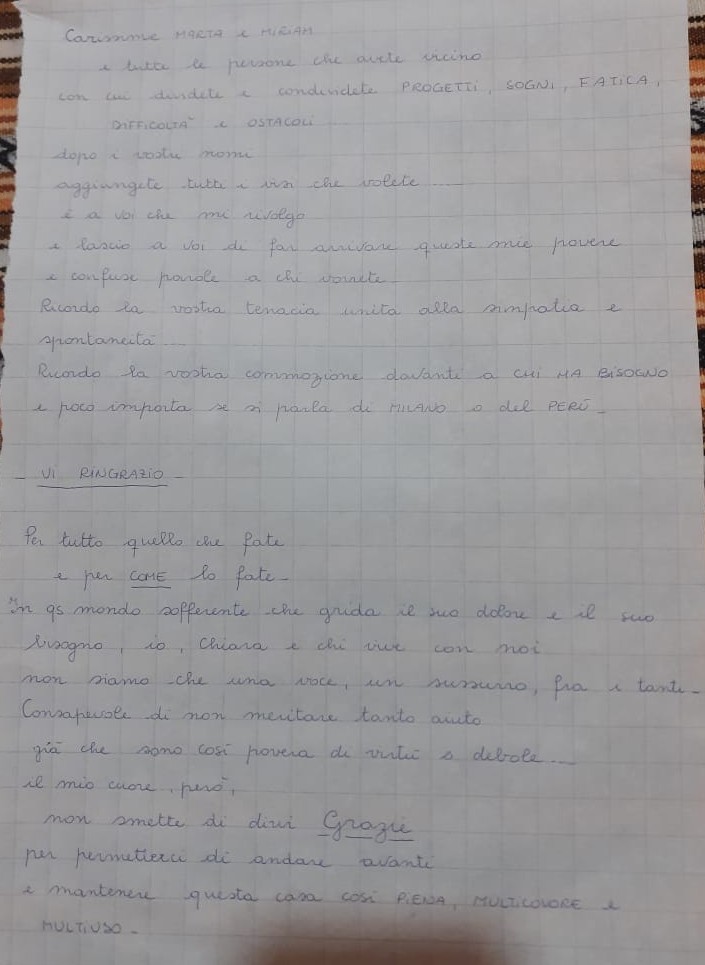 Carissime MARTA e MIRIAM
e tutte le persone che avete vicino
con cui dividete e condividete PROGETTI, SOGNI, FATICA,
DIFFICOLTÀ e OSTACOLI
dopo i vostri nomi
aggiungete tutti i visi che volete ...
è a voi che mi rivolgo
e lascio a voi di far arrivare queste mie povere
e confuse parole a chi vorrete.
Ricordo la vostra tenacia unita alla simpatia e
spontaneità ...
Ricordo la vostra commozione davanti a CHI HA BISOGNO
e poco importa se si parla di MILANO o del PERÙ -
- VI RINGRAZIO -
Per tutto quello che fate
e per COME lo fate -
In qs mondo sofferente che grida il suo dolore e il suo
bisogno, io, Chiara e chi vive con noi
non siamo che una voce, un sussurro, fra i tanti -
Consapevole di non meritare tanto aiuto
già che sono così povera di virtù e debole ...
il mio cuore, però,
non smette di dirvi Grazie
per permetterci di andare avanti
e mantenere questa casa così PIENA, MULTICOLORE e
MULTIUSO -